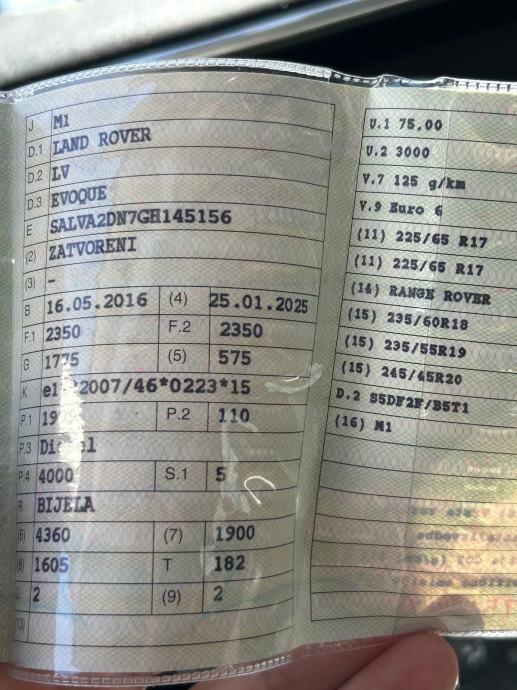 J M1
D.1 LAND ROVER
D.2 LV
D.3 EVOQUE
E SALVA2DN7GH145156
(2) ZATVORENI
(3) –
B 16.05.2016 (4) 25.01.2025
F.1 2350 F.2 2350
G 1775 (5) 575
K 2007/46*0223*15
P.1 P.2 110
P.3
P.4 4000 S.1 5
R BIJELA
(6) 4360 (7) 1900
(8) 1605 T 182
L 2 (9) 2
(13)
U.1 75,00
U.2 3000
V.7 125 g/km
V.9 Euro 6
(11) 225/65 R17
(11) 225/65 R17
(14) RANGE ROVER
(15) 235/60R18
(15) 235/55R19
(15) 245/45R20
D.2 S5DF2F/B5T1
(16) M1